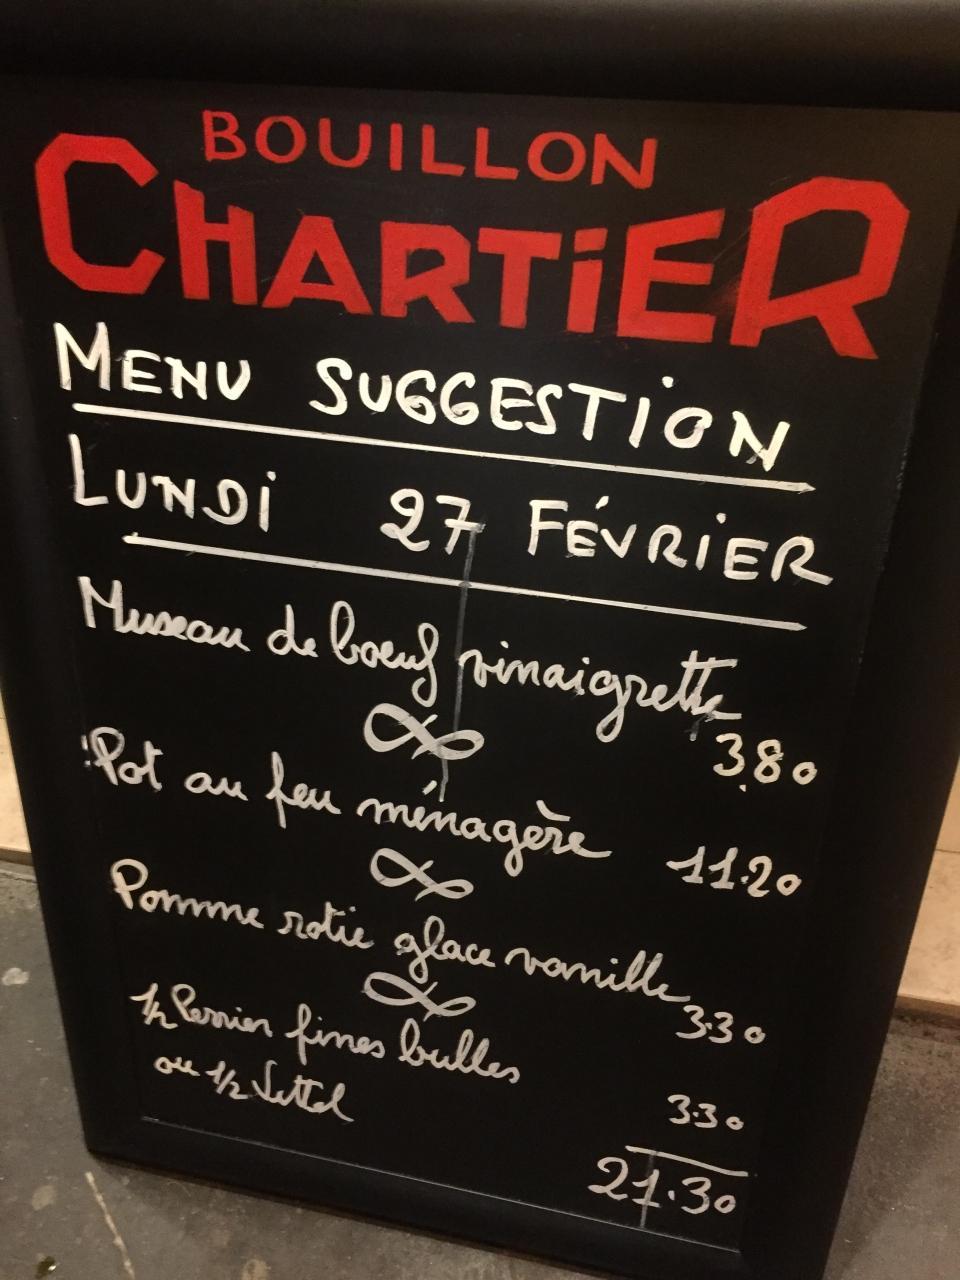 BOUILLON
CHARTiER
MENU SUGGESTiON
LUNDi 27 FÉVRiER
Museau de boeuf vinaigrette
3.80
Pot au feu ménagère 11.20
Pomme rotie glace vanille
3.30
1/2 Perrier fines bulles
ou 1/2 Vittel
3.30
21.30